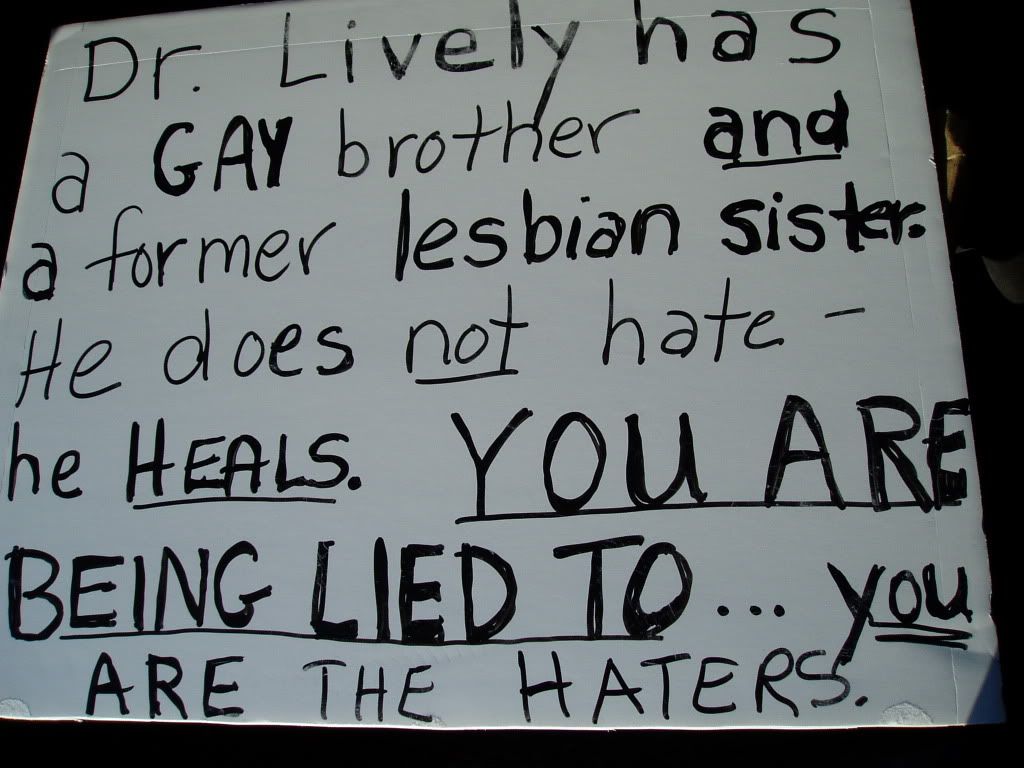 Dr. Lively has
a GAY brother and
a former lesbian sister.
He does not hate -
he HEALS. YOU ARE
BEING LIED TO... you
ARE THE HATERS.